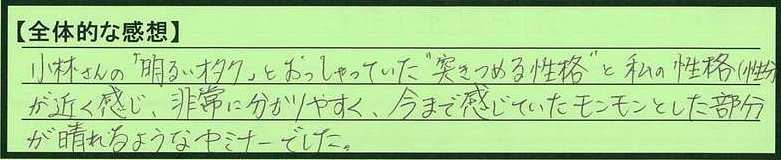 【全体的な感想】
小林さんの「明るいオタク」とおっしゃっていた"突きつめる性格"と私の性格(性分
が近く感じ、非常に分かりやすく、今まで感じていたモンモンとした部分
が晴れるようなセミナーでした。